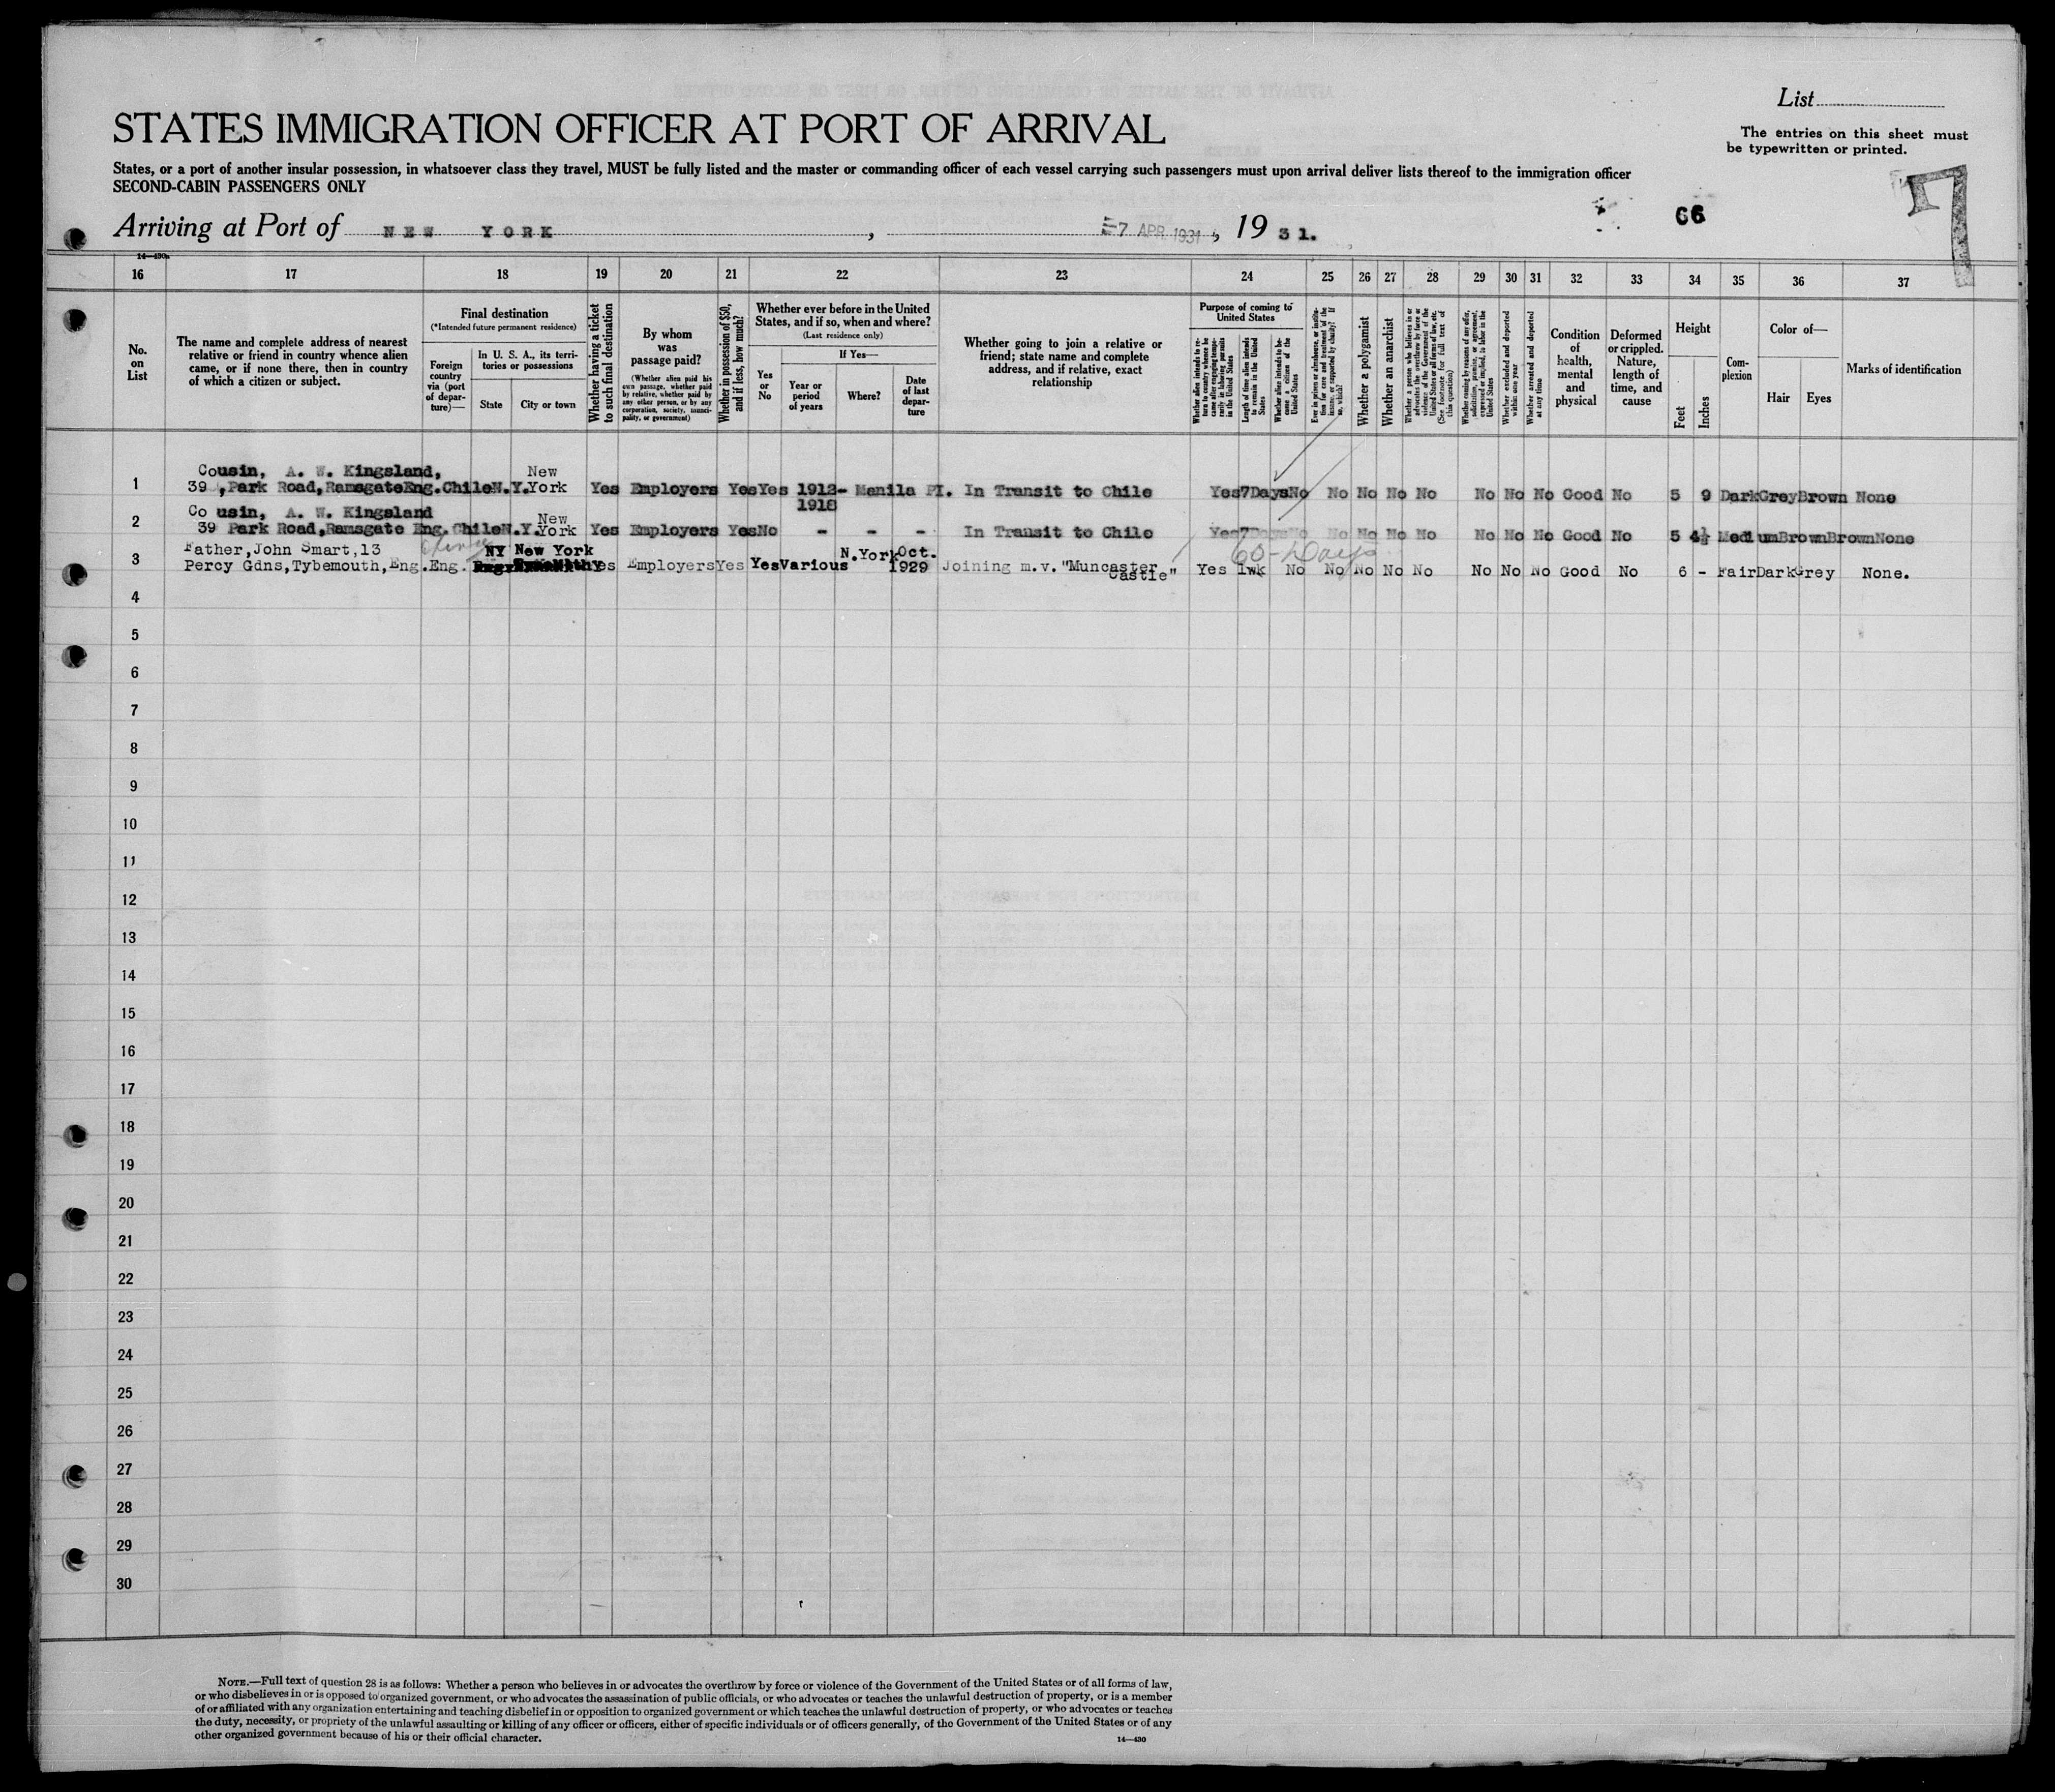 List
STATES IMMIGRATION OFFICER AT PORT OF ARRIVAL
The entries on this sheet must
be typewritten or printed.
States, or a port of another insular possession, in whatsoever class they travel, MUST be fully listed and the master or commanding officer of each vessel carrying such passengers must upon arrival deliver lists thereof to the immigration officer
SECOND-CABIN PASSENGERS ONLY
66
Arriving at Port of NEW YORK, 7 APR 1931, 19 31.
14—430a
16 17 18 19 20 21 22 23 24 25 26 27 28 29 30 31 32 33 34 35 36 37
No.
on
List
The name and complete address of nearest
relative or friend in country whence alien
came, or if none there, then in country
of which a citizen or subject.
Final destination
(*Intended future permanent residence)
Foreign
country
via (port
of depar-
ture)—
In U. S. A., its terri-
tories or possessions
State City or town
Whether having a ticket
to such final destination
By whom
was
passage paid?
(Whether alien paid his
own passage, whether paid
by relative, whether paid by
any other person, or by any
corporation, society, munici-
pality, or government)
Whether in possession of $50,
and if less, how much?
Whether ever before in the United
States, and if so, when and where?
(Last residence only)
Yes
or
No
If Yes—
Year or
period
of years
Where?
Date
of last
depar-
ture
Whether going to join a relative or
friend; state name and complete
address, and if relative, exact
relationship
Purpose of coming to
United States
Whether alien intends to re-
turn to country whence he
came after engaging tempo-
rarily in laboring pursuits
in the United States
Length of time alien intends
to remain in the United
States
Whether alien intends to be-
come a citizen of the
United States
Ever in prison or almshouse, or institu-
tion for care and treatment of the
insane, or supported by charity? If
so, which?
Whether a polygamist
Whether an anarchist
Whether a person who believes in or
advocates the overthrow by force or
violence of the Government of the
United States or all forms of law, etc.
(See footnote for full text of
this question)
Whether coming by reasons of any offer,
solicitation, promise, or agreement,
expressed or implied, to labor in the
United States
Whether excluded and deported
within one year
Whether arrested and deported
at any time
Condition
of
health,
mental
and
physical
Deformed
or crippled.
Nature,
length of
time, and
cause
Height
Feet Inches
Com-
plexion
Color of—
Hair Eyes
Marks of identification
Cousin, A. W. Kingsland, New
1 39 ,Park Road,Ramsgate Eng. Chile N.Y. York Yes Employers Yes Yes 1912- Manila PI. In Transit to Chile Yes 7 Days No No No No No No No No Good No 5 9 Dark Grey Brown None
1918
Co usin, A. W. Kingsland New
2 39 Park Road,Ramsgate Eng. Chile N.Y. York Yes Employers Yes No - - - In Transit to Chile Yes 7 Days No No No No No No No No Good No 5 4½ Medium Brown Brown None
Father,John Smart,13 NY New York N.York Oct. 60-Days
3 Percy Gdns,Tybemouth,Eng. Eng. Yes Employers Yes Yes Various 1929 Joining m.v. "Muncaster Castle" Yes 1wk No No No No No No No No Good No 6 - Fair Dark Grey None.
4
5
6
7
8
9
10
11
12
13
14
15
16
17
18
19
20
21
22
23
24
25
26
27
28
29
30
NOTE.—Full text of question 28 is as follows: Whether a person who believes in or advocates the overthrow by force or violence of the Government of the United States or of all forms of law,
or who disbelieves in or is opposed to organized government, or who advocates the assassination of public officials, or who advocates or teaches the unlawful destruction of property, or is a member
of or affiliated with any organization entertaining and teaching disbelief in or opposition to organized government or which teaches the unlawful destruction of property, or who advocates or teaches
the duty, necessity, or propriety of the unlawful assaulting or killing of any officer or officers, either of specific individuals or of officers generally, of the Government of the United States or of any
other organized government because of his or their official character.
14—430